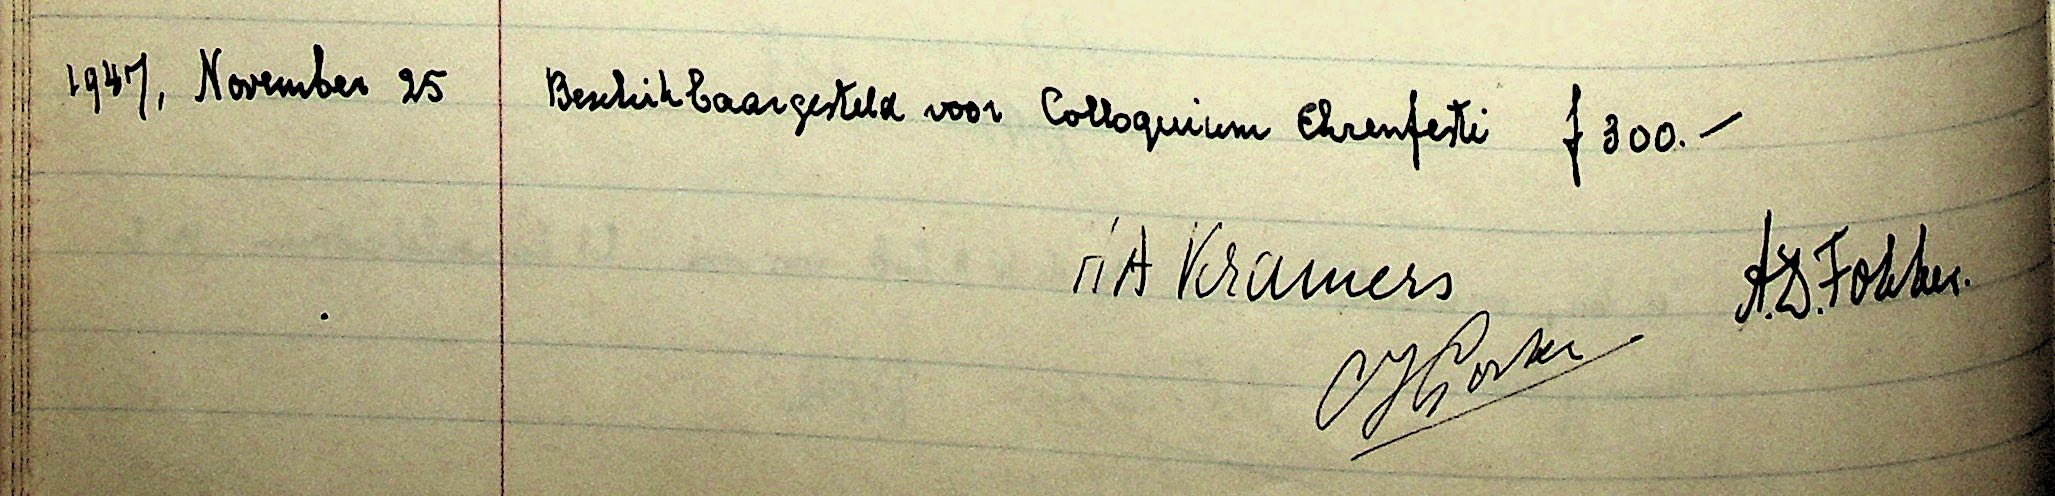 1947, November 25 Beschikbaargesteld voor Colloquium Ehrenfesti f 300.—
HA Kramers A.D. Fokker.
CJ Gorter